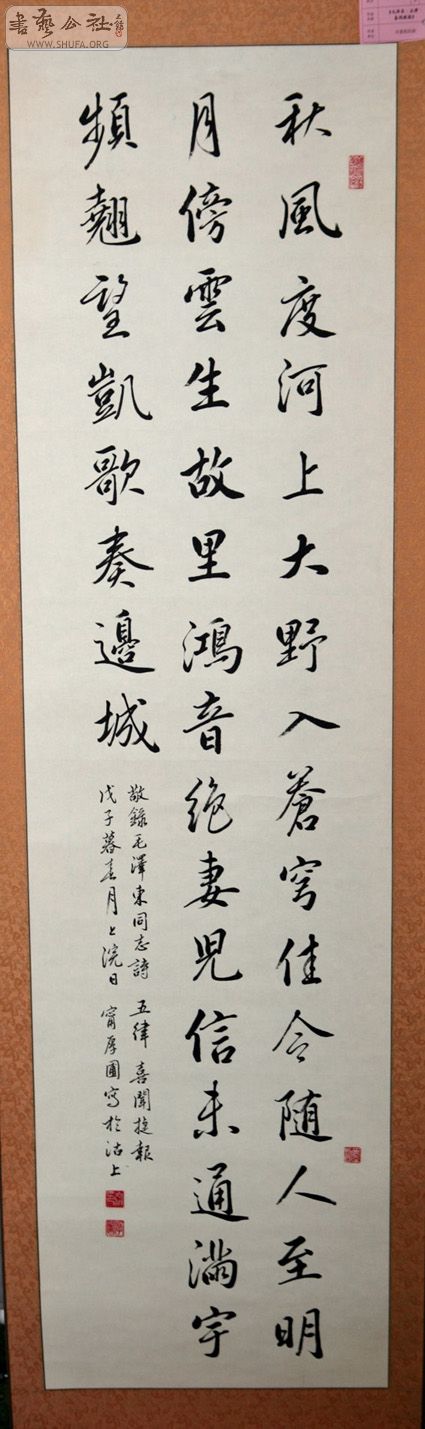 秋風度河上大野入蒼穹佳令隨人至明
月傍雲生故里鴻音絕妻兒信未通滿宇
頻翹望凱歌奏邊城
敬錄毛澤東同志詩 五律 喜聞捷報
戊子暮春月上浣日 甯厚圃寫於沽上
書藝公社
WWW.SHUFA.ORG